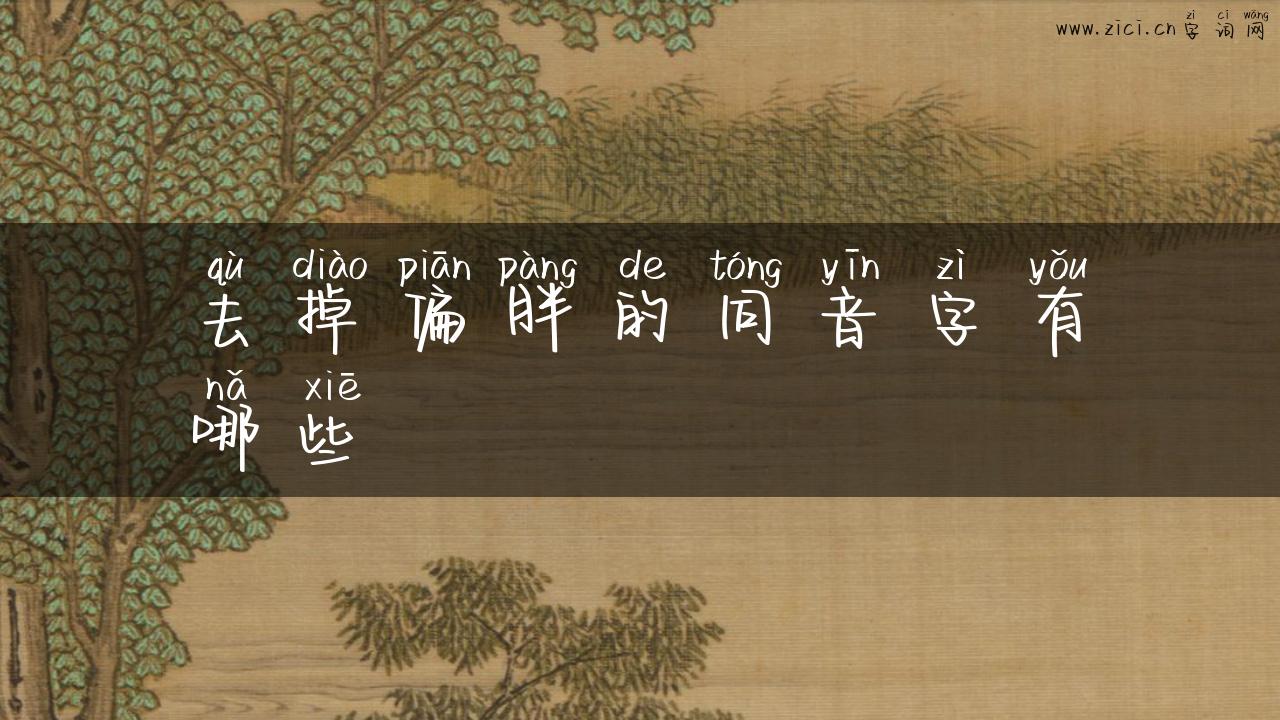 zì cí wǎng
www.zici.cn字词网
qù diào piān pàng de tóng yīn zì yǒu
去掉偏胖的同音字有
nǎ xiē
哪些